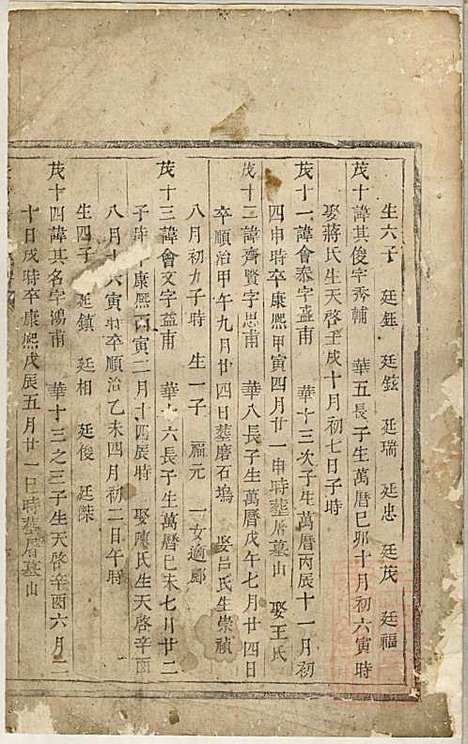 生六子　廷鈺　廷鉉　廷瑞　廷忠　廷茂　廷福
茂十諱其俊字秀輔　華五長子生萬曆己卯十月初六寅時
娶蔣氏生天啓壬戌十月初七日子時
茂十一諱會泰字臺甫　華十三次子生萬曆丙辰十一月初
四申時卒康熙甲寅四月廿一申時葬厝墓山　娶王氏
茂十二諱齊賢字思甫　華八長子生萬曆戊午七月廿四日
卒順治甲午九月廿四日葬磨石塢　娶呂氏生崇禎
八月初九子時　生一子　福元　一女適郎
茂十三諱會文字益甫　華十六長子生萬曆己未七月廿二
子時卒康熙丙寅二月十四辰時　娶陳氏生天啓辛酉
八月十六寅時卒順治乙未四月初二日午時
生四子　廷鎮　廷相　廷俊　廷傑
茂十四諱其名字鴻甫　華十三之三子生天啓辛酉六月二
十日戌時卒康熙戊辰五月廿一日時葬厝墓山